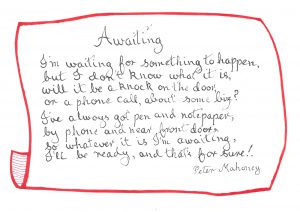 Awaiting
I'm waiting for something to happen,
but I don't know what it is,
will it be a knock on the door,
or a phone call, about some biz?
I've always got pen and notepaper,
by phone and near front door,
so whatever it is I'm awaiting,
I'll be ready, and that's for sure!.
Peter Mahoney